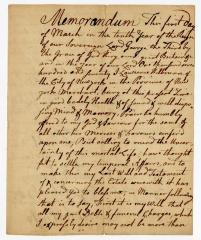 Memorandum This first day
of March in the tenth Year of the Reign
of our Sovereign Lord George the Third by
the Grace of God King over great Britain &c
and in the year of our Lord One thousand seven
hundred and seventy I Laurence
the City of New York in the Province of New
York Merchant, being at the present Time
in good bodily Health & of sound & well dispo-
sing Mind & Memory, Praise be humbly
given to my God & Saviour for the same &
all other his Mercies & Favours conferr'd
upon me, But calling to mind the Uncer-
tainty of this mortal Life have thought
fit to settle my temporal Affairs, and to
make this my Last Will and Testament
concerning the Estate wherewith it has
pleased God to bless me, in Manner following
that is to say, First it is my Will that
all my just Debts & funeral Charges which
I expressly desire may not be more than